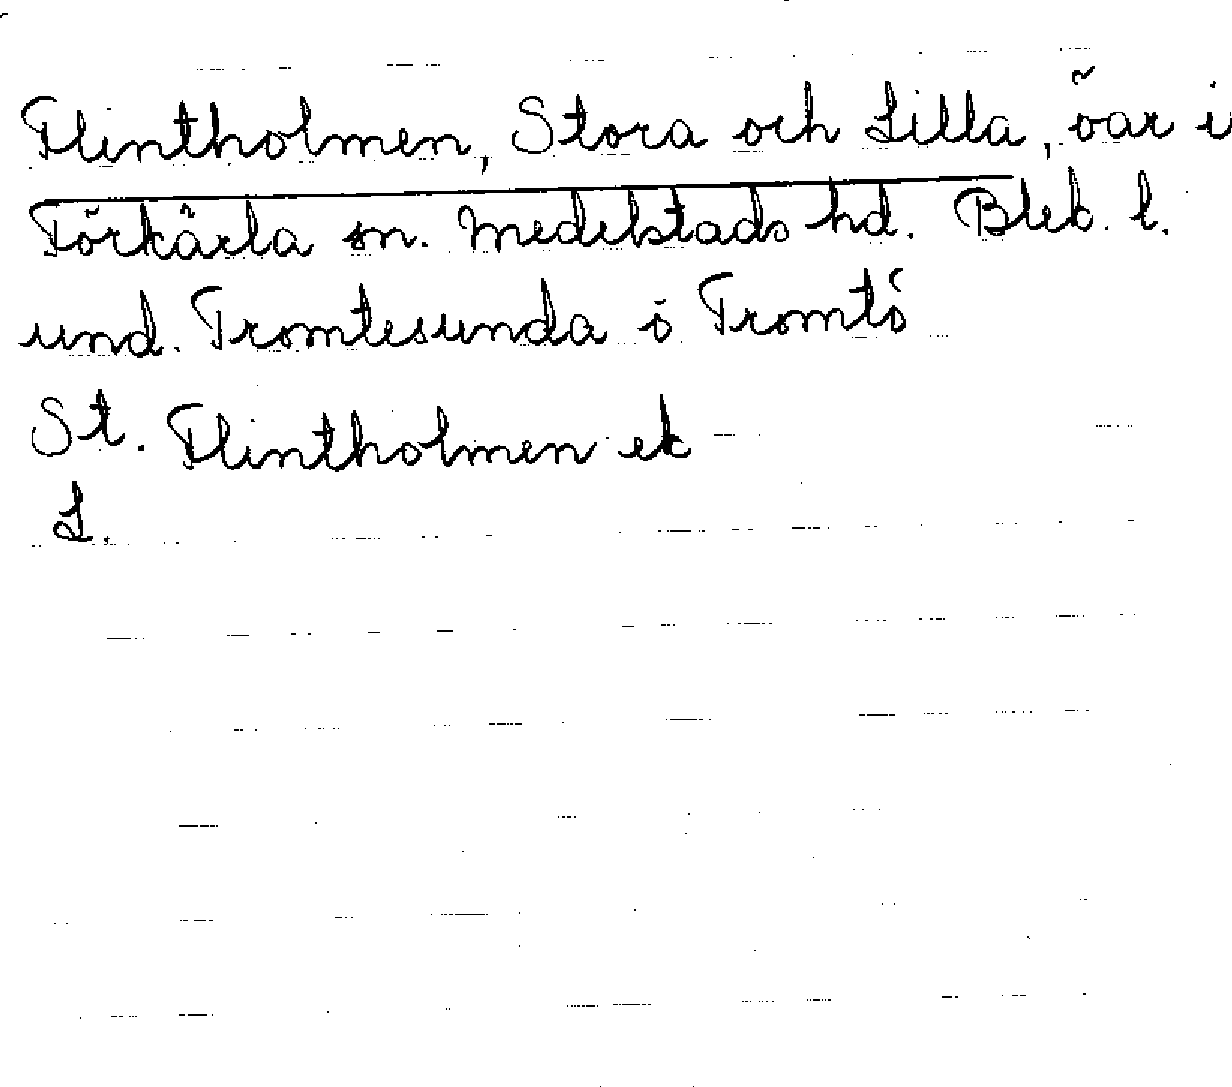 Flintholmen, Stora och Lilla, öar i
Förkärla sn. Medelstads hd. Blek. l.
und. Tromtesunda i Tromtö
St. Flintholmen ek
L.